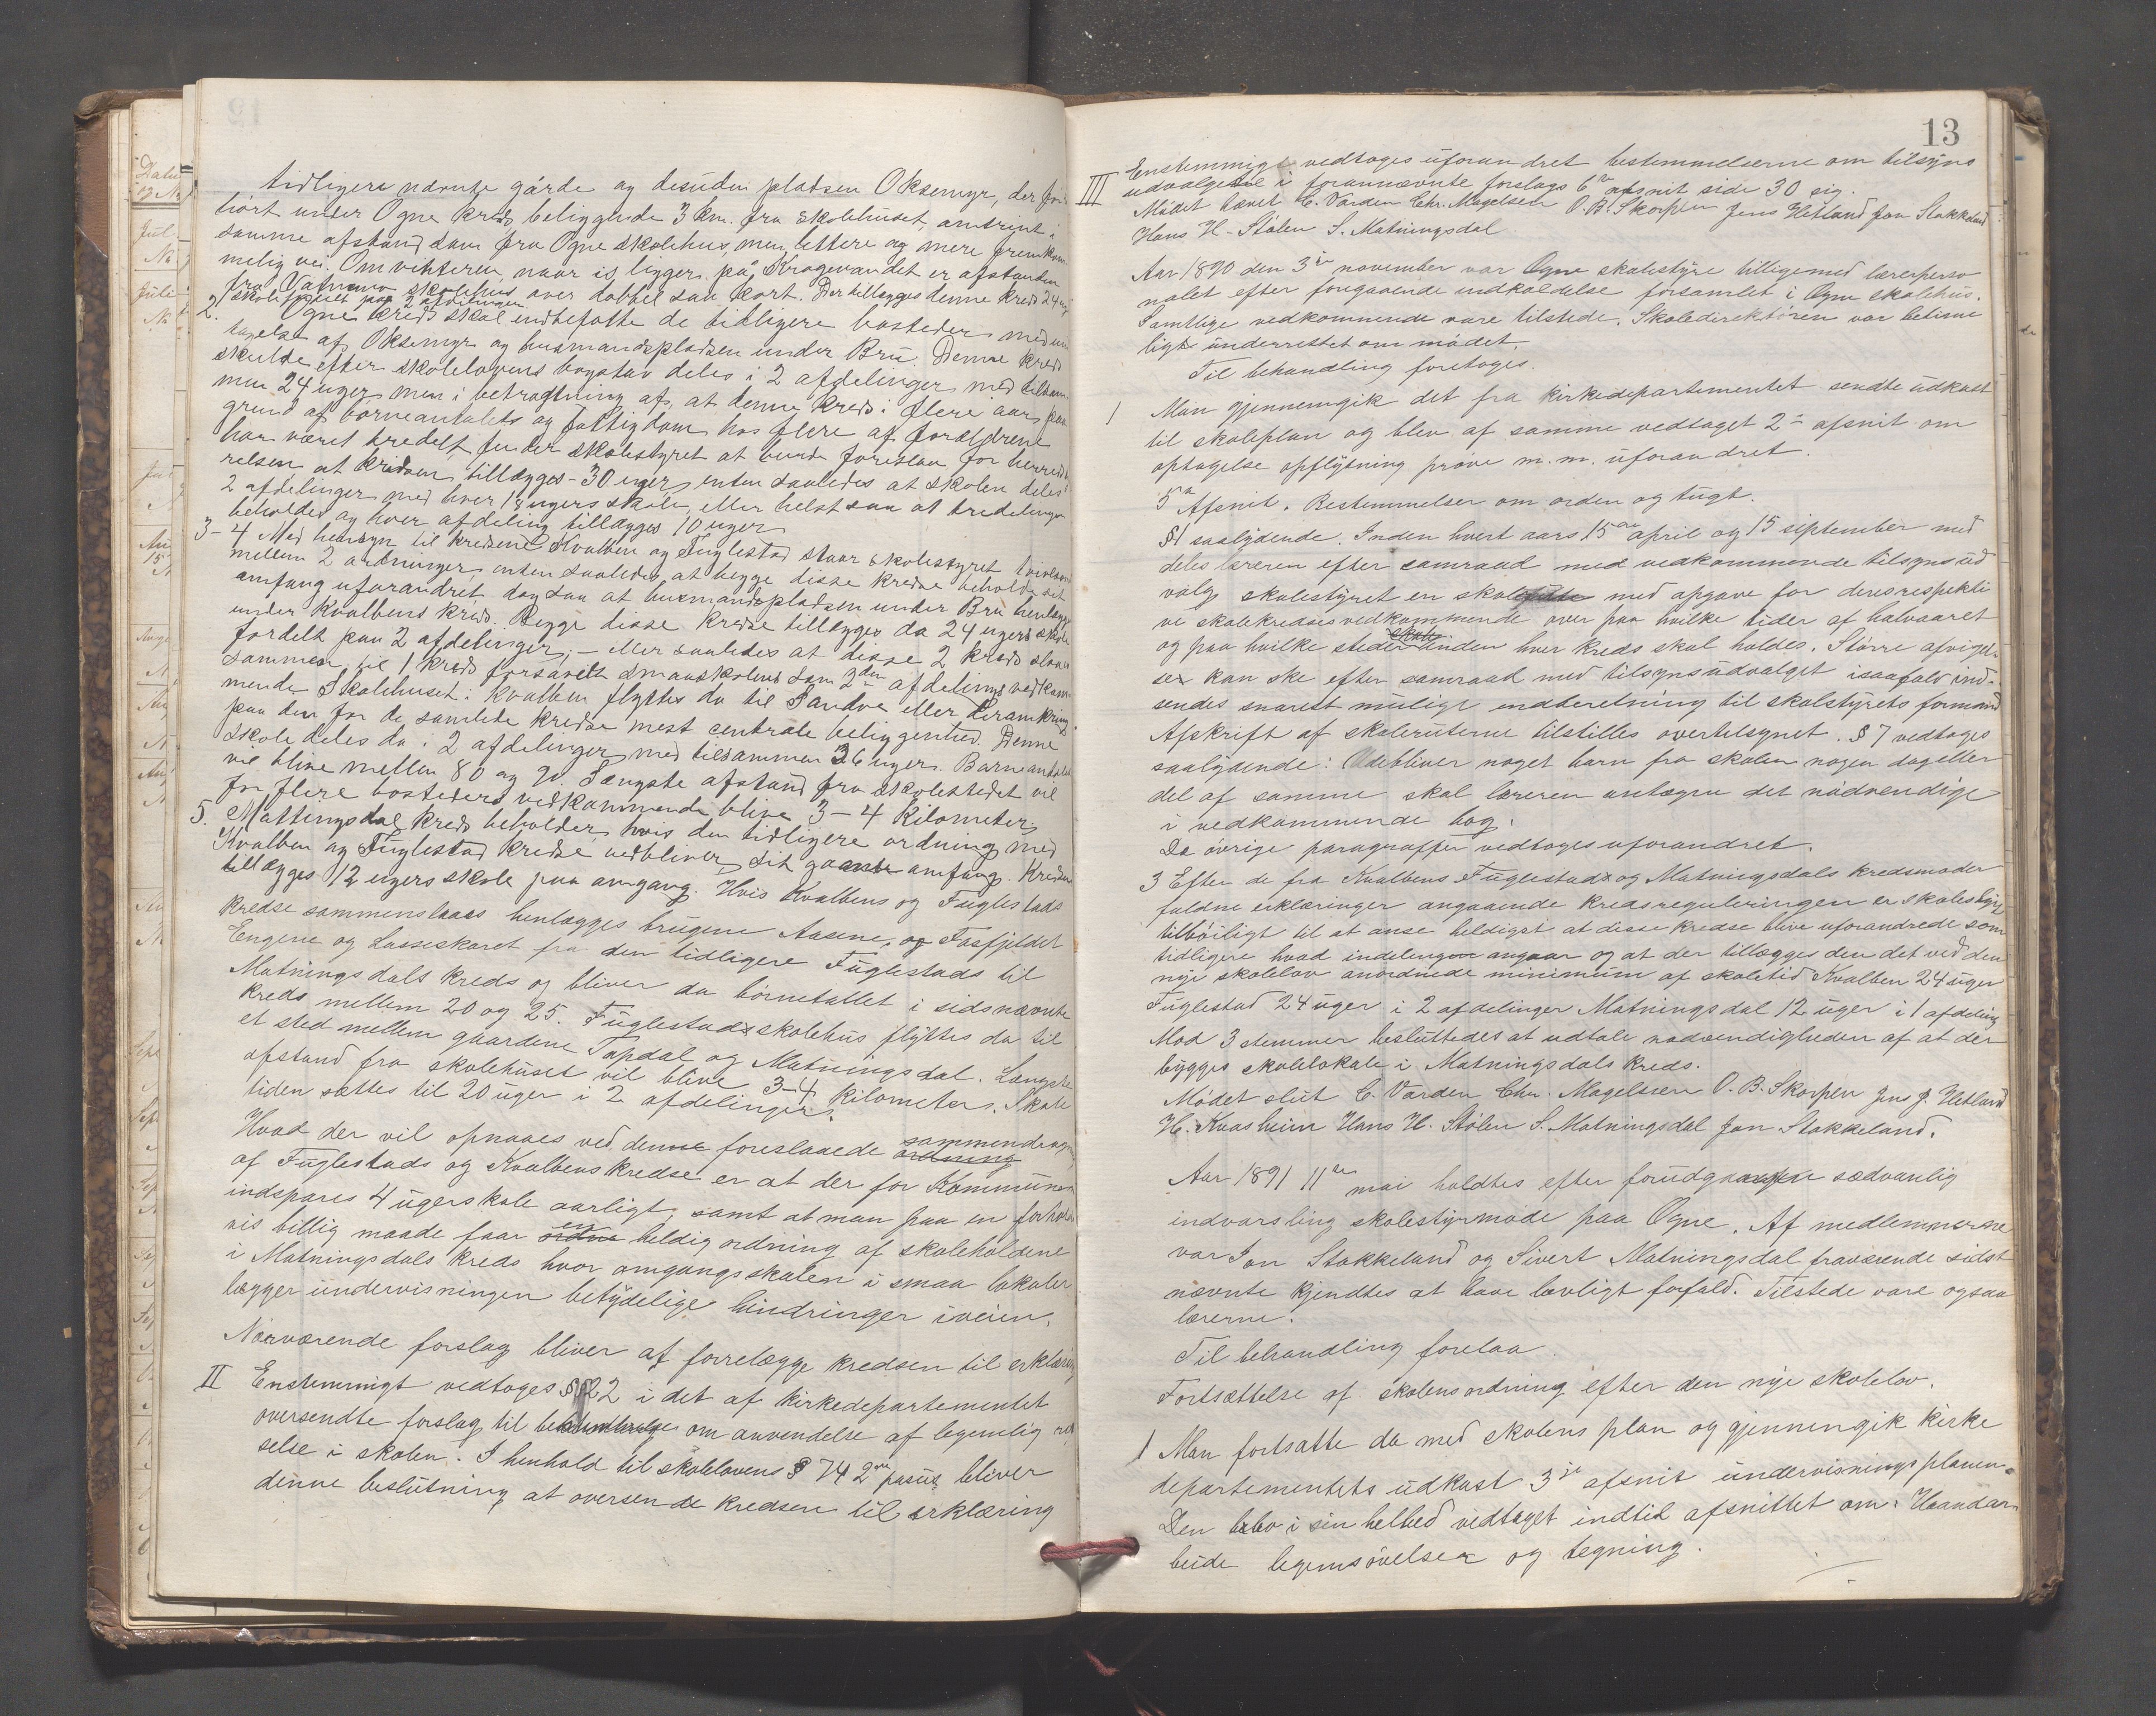 tidligere nævnte gårde og desuden pladsen Oksemyr, der før
hørt under Ogne kreds beliggende 3 km. fra skolehuset, omtrint i
samme afstand som fra Ogne skolehus, men lettere og mere fremkom
melig vei. Om vinteren naar is ligger på Kragevandet er afstanden
fra skolehus over dobbel saa kort. Der tillægges denne kreds 24 ug
skole fordelt paa 2 afdelinger
2. Ogne kreds skal indbefatte de tidligere bosteder med und
tagelse af Oksemyr og husmandspladsen under Bru. Denne kreds
skulde efter skolelovens bogstav deles i 2 afdelinger med tilsam
men 24 uger, men i betragtning af, at denne kreds i flere aar paa
grund af børneantalets og fattigdom hos flere af forældrene
har været tredelt finder skolestyret at burde foreslaa for herreds
relsen at kredsen tillægges 30 uger, enten saaledes at skolen deles i
2 afdelinger med hver 15 ugers skole, eller helst saa at tredelingen
beholdes og hver afdeling tillægges 10 uger
3-4 Med hensyn til kredsene Kvalben og Fuglestad staar skolestyret tvivlende
mellem 2 ordninger, enten saaledes at begge disse kredse beholde sit
omfang uforandret dog saa at husmandspladsen under Bru henlægges
under Kvalbens kreds. Begge disse kredse tillægges da 24 ugers skole
fordelt paa 2 afdelinger, - eller saaledes at disse 2 kreds slaaes
sammen til 1 kreds forsavidt smaaskolens som 2den afdelings vedkom
mende. Skolehuset i Kvalben flyttes da til Sandve eller deromkring
paa den for de samlede kredse mest centrale beliggenhed. Denne
skole deles da i 2 afdelinger med tilsammen 36 uger. Barneantallet
vil blive mellem 80 og 90. Længste afstand fra skolestedet vil
for flere bosteders vedkommende blive 3-4 Kilometer.
5. Mattingsdal kreds beholder, hvis den tidligere ordning med
Kvalben og Fuglestad kredse vedbliver, sit omfang. Kredsen
tillægges 12 ugers skole paa omgang. Hvis Kvalbens og Fuglestads
kredse sammenslaaes henlægges brugene Aasene, og Fosfjeldet
Engene og Lasseskaret fra den tidligere Fuglestads til
Matningsdals kreds og bliver da børnetallet i sidsnævnte
kreds mellem 20 og 25. Fuglestads skolehus flyttes da til
et sted mellem gaardene Tapdal og Matningsdal. Længste
afstand fra skolehuset vil blive 3-4 kilometer. Skole
tiden sættes til 20 uger i 2 afdelinger.
Hvad der vil opnaaes ved denne foreslaaede ordning sammendragn
af Fuglestads og Kvalbens kredse er at der for Kommunen
indspares 4 ugerskole aarligt, samt at man paa en forholds
vis billig maade faar ordne en heldig ordning af skoleholdene
i Matningsdals kreds hvor omgangsskolen i smaa lokaler
lægger undervisningen betydelige hindringer iveien.
Nærværende forslag bliver af forrelægge kredsen til erklæring
II Enstemmigt vedtoges § 22 i det af kirkedepartementet
oversendte forslag til om anvendelse af legemlig ref
selse i skolen. I henhold til skolelovens § 74 2den pasus bliver
denne beslutning at oversende kredsen til erklæring
13
III Enstemmigt vedtoges uforandret bestemmelserne om tilsyns
udvalget i forannævnte forslags 6te afsnit side 30 sig.
Mødet hævet C. Varden Chr. Magelssen O.B. Skorpen Jens Hetland Jon Stokkeland
Hans H. Stølen S. Matningsdal
Aar 1890 den 3die november var Ogne skolestyre tilligemed lærerperso
nalet efter foregaaende indkaldelse forsamlet i Ogne skolehus.
Samtlige vedkommende vare tilstede. Skoledirektøren var betime
ligt underrettet om mødet.
Til behandling foretoges.
1 Man gjennemgik det fra kirkedepartementet sendte udkast
til skoleplan og blev af samme vedtaget 2- afsnit om
optagelse opflytning prøve m.m. uforandret.
5te Afsnit. Bestemmelser om orden og tugt.
§1 saalydende. Inden hvert aars 15de april og 15 september med
deles læreren efter samraad med vedkommende tilsynsud
valg skolestyret en med opgave for deres respekti
ve skolekredses vedkommende over paa hvilke tider af halvaaret
og paa hvilke steder skole inden hver kreds skal holdes. Større afvigel
ser kan ske efter samraad med tilsynsudvalget isaafald ind-
sendes snarest muligt indberetning til skolstyrets formand
Afskrift af skoleruterne tilstilles overtilsynet. § 7 vedtoges
saalydende: Udebliver noget barn fra skolen nogen dag eller
del af samme skal læreren antegne det nødvendige
i vedkommende bog.
De øvrige paragraffer vedtoges uforandret.
3 Efter de fra Kvalbens Fuglestads og Matningsdals kredsmøder
faldne erklæringer angaaende kredsreguleringen er skolestyret
tilbøiligt til at anse heldigst at disse kredse blive uforandrede som
tidligere hvad indelingen angaar og at der tillægges den det ved den
nye skolelov anordnede minimum af skoletid Kvalben 24 uger
Fuglestad 24 uger i 2 afdelinger Matningsdal 12 uger i 1 afdeling
Mod 3 stemmer besluttedes at udtale nødvendigheden af at der
bygges skolelokale i Matningsdals kreds.
Mødet slut C. Varden Chr. Magelssen O.B. Skorpen Jens J. Hetland
H. Kvasheim Hans H. Stølen S. Matningsdal Jon Stokkeland.
Aar 1891 11te mai holdtes efter forudgaaende sædvanlig
indvarsling skolestyrmøde paa Ogne. Af medlemmerne
var Jon Stokkeland og Sivert Matningsdal fraværende sidst
nævnte kjendtes at have lovligt forfald. Tilstede vare ogsaa
lærerne.
Til behandling forelaa.
Fortsættelse af skolens ordning efter den nye skolelov.
1 Man fortsatte da med skolens plan og gjennemgik kirke
departementets udkast 3die afsnit undervisningsplanen.
Den blev i sin helhed vedtaget indtil afsnittet om: Haandar
beide legemsøvelser og tegning.